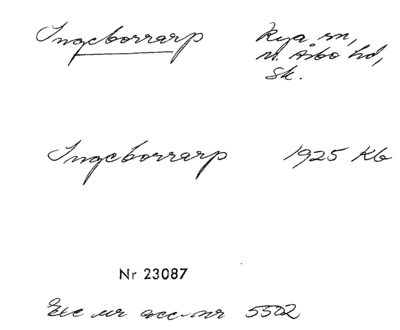 Ingeborrarp Rya sn,
N. Åsbo hd,
Sk.
Ingeborrarp 1925 Kb
Nr 23087
acc-nr 5502